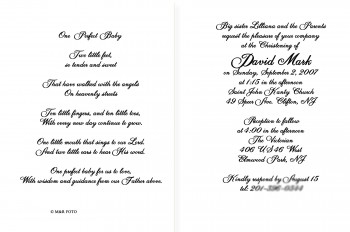 One Perfect Baby
Two little feet,
so tender and sweet
That have walked with the angels
On heavenly shores
Ten little fingers, and ten little toes,
With every new day continue to grow.
One little mouth that sings to our Lord,
And two little ears to hear His word.
One perfect baby for us to love,
With wisdom and guidance from our Father above.
© M&R FOTO
Big sister Lilliana and the Parents
request the pleasure of your company
at the Christening of
David Mark
on Sunday, September 2, 2007
at 1:15 in the afternoon
Saint John Kanty Church
49 Speer Ave. Clifton, NJ
Reception to follow
at 4:00 in the afternoon
The Victorian
406 US46 West
Elmwood Park, NJ
Kindly respond by August 15
tel: